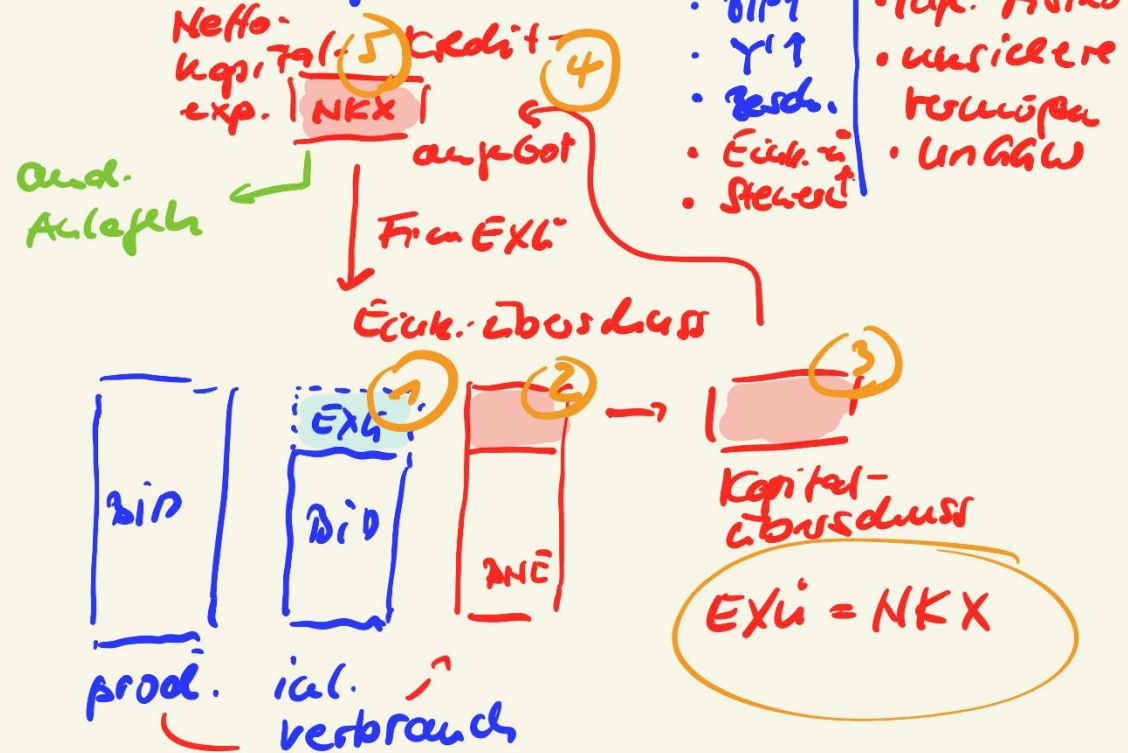 Netto-
kapital-
exp.
5
NKX
Kredit-
angebot
4
· BIP↑
· Y↑
· Besch.
· Eink.-ü
· Steuern↑
· unsichere
· UnGGW
and.
Anlagen
Finan EXÜ
Eink.-überschuss
1
2
3
BiP
EXÜ
BiP
BNE
Kapital-
überschuss
EXÜ = NKX
prod.
inl.
verbrauch